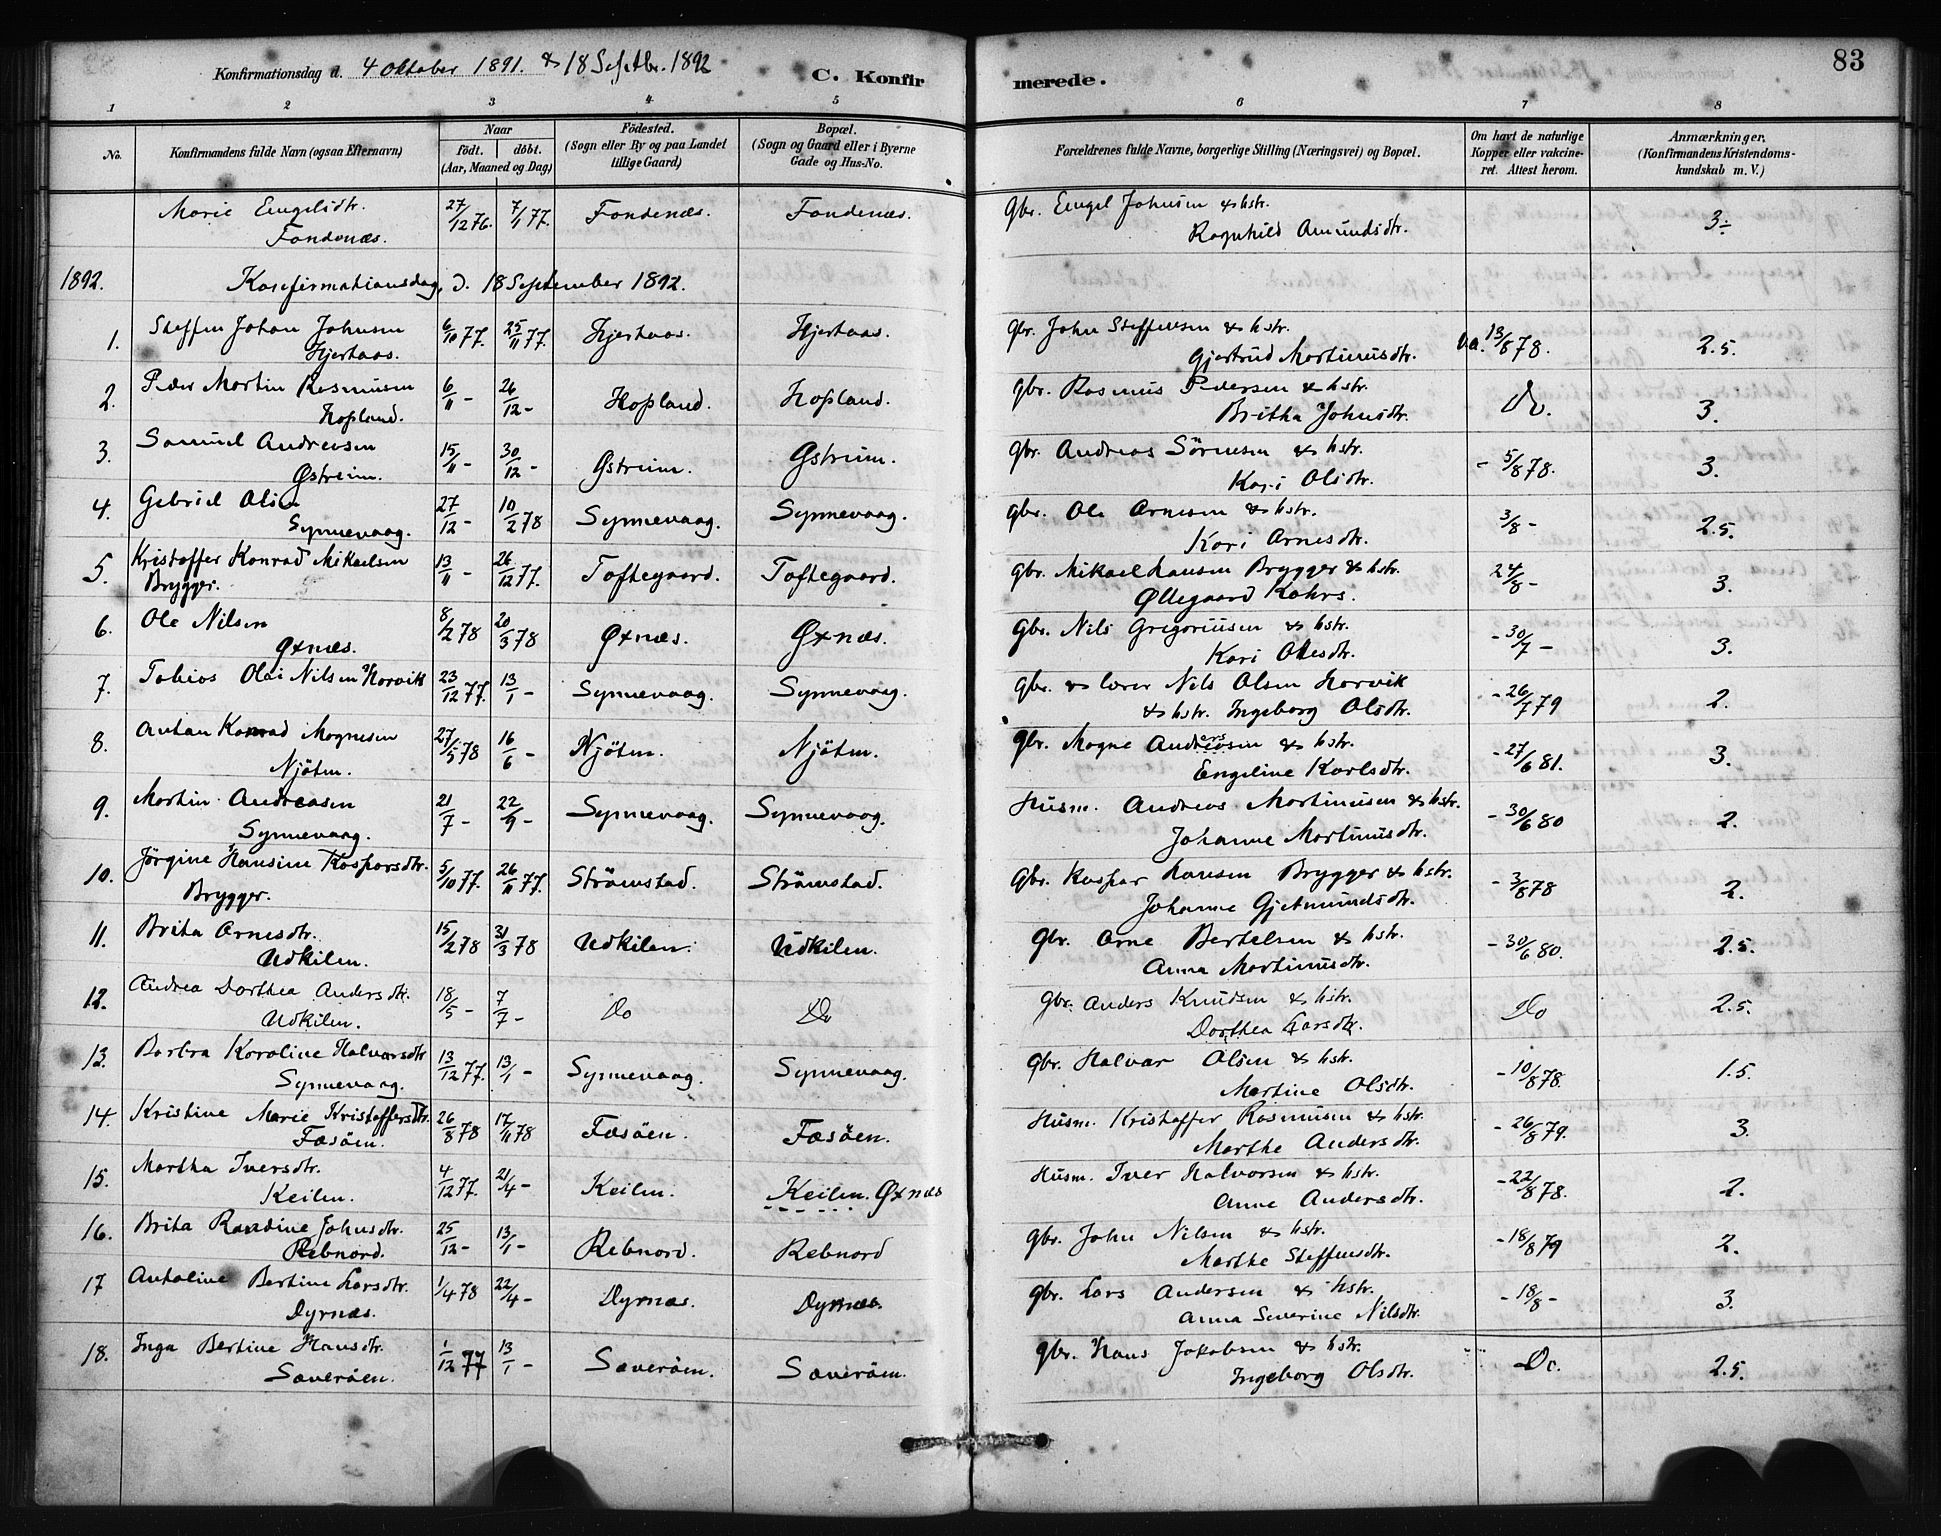 83
Konfirmationsdag d. 4 Oktober 1891. & 18 Septbr. 1892 C. Konfirmerede.
1 2 3 4 5 6 7 8
No. Konfirmandens fulde Navn (ogsaa Efternavn) Naar födt. döbt. (Aar, Maaned og Dag) Födested. (Sogn eller By og paa Landet tillige Gaard) Bopæl. (Sogn og Gaard eller i Byerne Gade og Hus-No. Forældrenes fulde Navne, borgerlige Stilling (Næringsvei) og Bopæl. Om havt de naturlige Kopper eller vakcineret. Attest herom. Anmærkninger. (Konfirmandens Kristendomskundskab m. V.)
Marie Engelsdtr. 27/12 76. 7/1 77. Fondenæs. Fondenæs. Gbr. Engel Johnsen & hstr. 3÷
Fondenæs. Ragnhild Amundsdtr.
1892. Konfirmationsdag, d. 18 September 1892.
1. Steffen Johan Johnsen 6/10 77. 25/11 77. Hjertaas. Hjertaas. Gbr. John Steffensen & hstr. va. 13/8 78. 2.5.
Hjertaas. Gjertrud Martinusdtr.
2. Peder Martin Rasmusen 6/11 - 26/12 - Hopland. Hopland. Gbr. Rasmus Pedersen & hstr. Do. 3.
Hopland. Britha Johnsdtr.
3. Samuel Andreasen 15/11 - 30/12 - Østreim. Østreim. Gbr. Andreas Sörensen & hstr. - 5/8 78. 3.
Østreim. Kari Olsdtr.
4. Gabriel Olsen 27/12 - 10/2 78 Synnevaag. Synnevaag. Gbr. Ole Arnesen & hstr. 3/8 - 2.5.
Synnevaag. Kari Arnesdtr.
5. Kristoffer Konrad Mikaelsen 13/11 - 26/12 77. Toftegaard. Toftegaard. Gbr. Mikael Hansen Brygger & hstr. 24/8 - 3.
Brygger. Øllegaard Kahrs.
6. Ole Nilsen 8/2 78 20/3 78 Øxnæs. Øxnæs. Gbr. Nils Gregoriusen & hstr. - 30/7 - 3.
Øxnæs. Kari Olesdtr.
7. Tobias Olai Nilsen Horvik 23/12 77. 13/1 - Synnevaag. Synnevaag. Gbr. & lærer Nils Olsen Horvik - 26/7 79 2.
& hstr. Ingeborg Olsdtr.
8. Anton Konrad Mognesen 27/5 78 16/6 - Njöten. Njöten. Gbr. Mogne Andersen & hstr. - 27/6 81. 3.
Njöten. Engeline Karlsdtr.
9. Martin Andreasen 21/7 - 22/9 - Synnevaag. Synnevaag. Husm. Andreas Martinusen & hstr. - 30/6 80 2.
Synnevaag. Johanne Martinusdtr.
10. Jörgine Hansine Kasparsdtr. 5/10 77. 26/11 77. Strömstad. Strömstad. Gbr. Kaspar Hansen Brygger & hstr. - 3/8 78 2.
Brygger. Johanne Gjetmundsdtr.
11. Brita Arnesdtr. 15/2 78 31/3 78 Udkilen. Udkilen. Gbr. Arne Bertelsen & hstr. - 30/6 80. 2.5.
Udkilen. Anna Martinusdtr.
12. Andrea Dorthea Andersdtr. 18/5 - 7/7 - Do Do Gbr. Anders Knudsen & hstr. Do 2.5.
Udkilen. Dorthea Larsdtr.
13. Barbra Karoline Halvorsdtr 13/12 77. 13/1 - Synnevaag. Synnevaag. Gbr. Halvar Olsen & hstr. - 10/8 78. 1.5.
Synnevaag. Martine Olsdtr.
14. Kristine Marie Kristoffersdtr. 26/8 78 17/11 78 Fæsöen. Fæsöen. Husm. Kristoffer Rasmusen & hstr. - 26/8 79. 3.
Fæsöen. Marthe Andersdtr.
15. Martha Iversdtr. 4/12 77. 21/4 - Keilen. Keilen. Øxnæs Husm. Iver Halvorsen & hstr. - 22/8 78. 2.
Keilen. Anne Andersdtr.
16. Brita Randine Johnsdtr. 25/12 - 13/1 - Rebnord. Rebnord Gbr. John Nilsen & hstr. - 18/8 79 2.
Rebnord. Marthe Steffensdtr.
17 Antoline Bertine Larsdtr. 1/4 78 22/4 - Dyrnæs. Dyrnæs. Gbr. Lars Andersen & hstr. - 18/8 - 3.
Dyrnæs. Anna Severine Nilsdtr.
18. Inga Bertine Hansdtr. 1/12 77 13/1 - Saveröen. Saveröen. Gbr. Hans Jakobsen & hstr. - Do. 2.5.
Saveröen. Ingeborg Olsdtr.